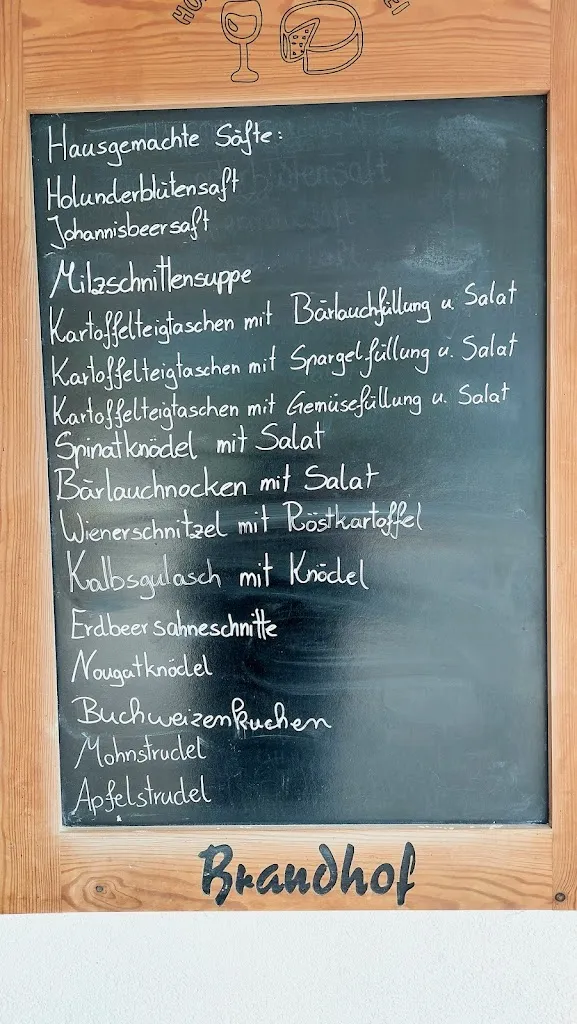 Hausgemachte Säfte:
Holunderblütensaft
Johannisbeersaft
Milzschnittensuppe
Kartoffelteigtaschen mit Bärlauchfüllung u. Salat
Kartoffelteigtaschen mit Spargelfüllung u. Salat
Kartoffelteigtaschen mit Gemüsefüllung u. Salat
Spinatknödel mit Salat
Bärlauchnocken mit Salat
Wienerschnitzel mit Röstkartoffel
Kalbsgulasch mit Knödel
Erdbeersahneschnitte
Nougatknödel
Buchweizenkuchen
Mohnstrudel
Apfelstrudel
Brandhof